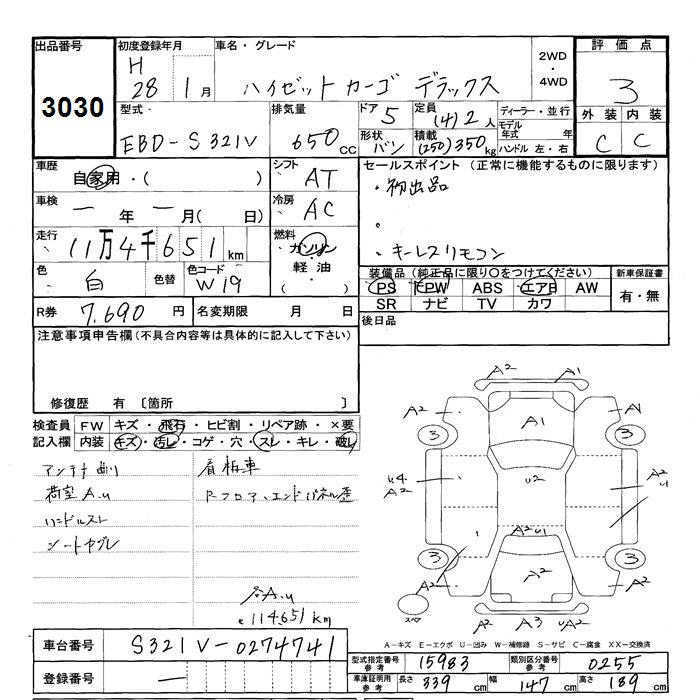 出品番号 初度登録年月 車名・グレード 2WD・4WD 評価点
3030 H 28 1月 ハイゼットカーゴ デラックス 3
型式 排気量 ドア 5 定員 (4) 2人 ディーラー・並行 外装 内装
EBD-S321V 650cc 形状 バン 積載 (250) 350kg モデル年式 年 ハンドル 左・右 C C
車歴 自家用・( ) シフト AT セールスポイント (正常に機能するものに限ります)
車検 一年 一月( 日) 冷房 AC ・初出品
走行 11万4千651km 燃料 ガソリン・軽油・ ・キーレスリモコン
色 白 色替 色コード W19 装備品(純正品に限り○をつけてください) 新車保証書
PS PW ABS エアB AW 有・無
R券 7,690円 名変期限 月 日 SR ナビ TV カワ
注意事項申告欄(不具合内容等は具体的に記入して下さい) 後日品
修復歴 有 〔箇所
検査員 FW キズ・飛石・ヒビ割・リペア跡・×要
記入欄 内装 キズ・汚レ・コゲ・穴・スレ・キレ・破レ
アンテナ曲り
荷室A.U Rフロア、エンドパネル歪
ハンドルスレ
シートヤブレ
A.U
114,651km
A2 A1
A2 A1 A1
3 3
U4 A2 U2 A2 U1
A2 U1
3 3
A2 A2 A2
スペア A2 A3 UA2
A-キズ E-エクボ U-凹み W-補修跡 S-サビ C-腐食 XX-交換済
車台番号 S321V-0274741
型式指定番号 参考 15983 類別区分番号 参考 0255
登録番号 一 車庫証明用 参考 長さ 339cm 幅 147cm 高さ 189cm